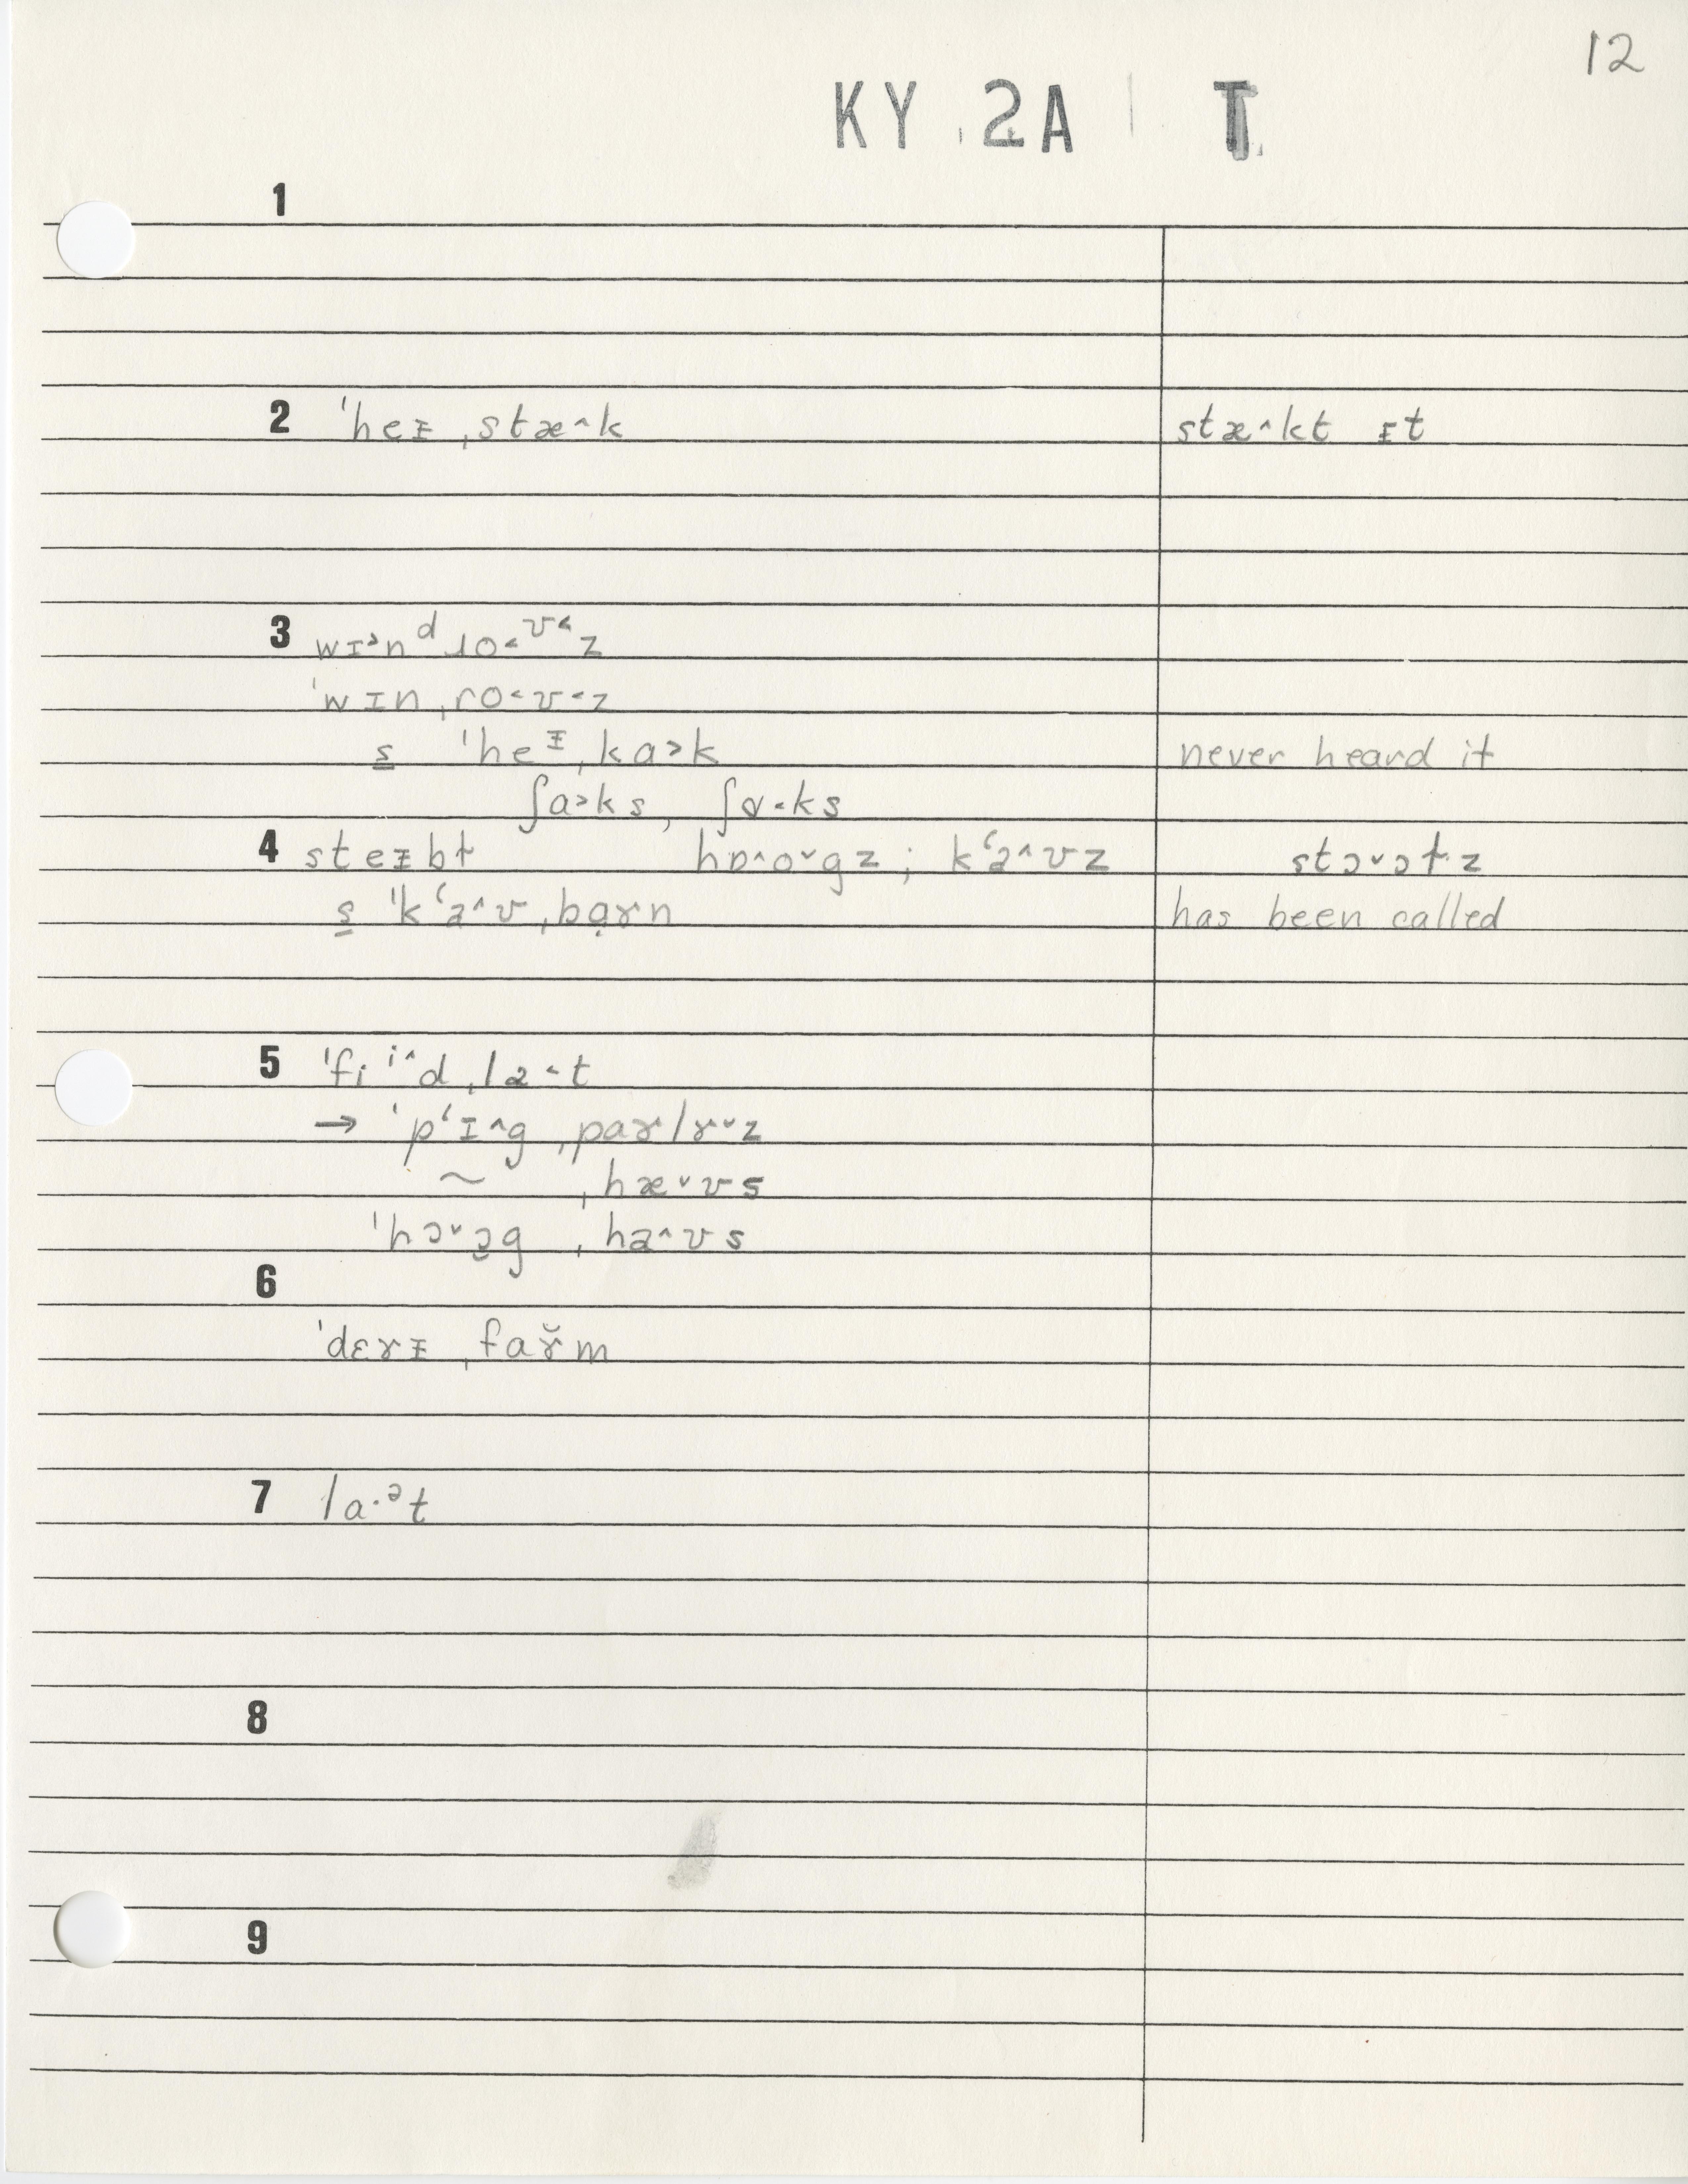 12
KY 2A T
1
2 ˈheᵻ ˌstæ˄k stæ˄kt ᵻt
3 wɪ˃nᵈ ɹo˂ᶹ˂z
ˈwɪn ˌro˂ʊ˂z
s̲ ˈheᵻ ˌka˃k never heard it
ʃa˃ks, ʃɑ˂ks
4 steᵻbɫ hɒ˄o˅gz; kʻa˄ʊz stɔ˅ɔɫz
s̲ ˈkʻa˄ʊ ˌbɑ̣ɤn has been called
5 ˈfiⁱ˄d ˌla˂t
→ ˈpʻɪ˄g ˌpaɤlɤ˅z
~ ˌhæ˅ʊs
ˈhɔ˅ɔ̜g ˌha˄ʊs
6
ˈdɛɤᵻ ˌfaɤ̆m
7 la·ᵊt
8
9